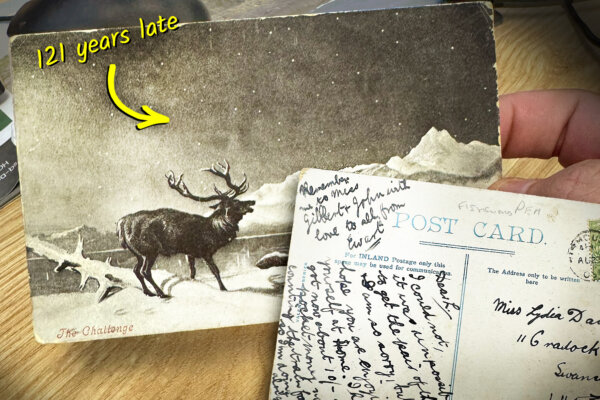 121 years late
The Challenge
Remember
to Miss
Gilbert & John with
love to all from
Ewart
FISHGUARD
POST CARD.
For INLAND Postage only this
space may be used for communication.
The Address only to be written
here
Dear L,
I could not,
it was impossible
to get the pair of
I am so sorry, but
I hope you are enjoy
yourself at home.
got now about 10/-
pocket money
Miss Lydia Da
11 Cradock
Swans
AU